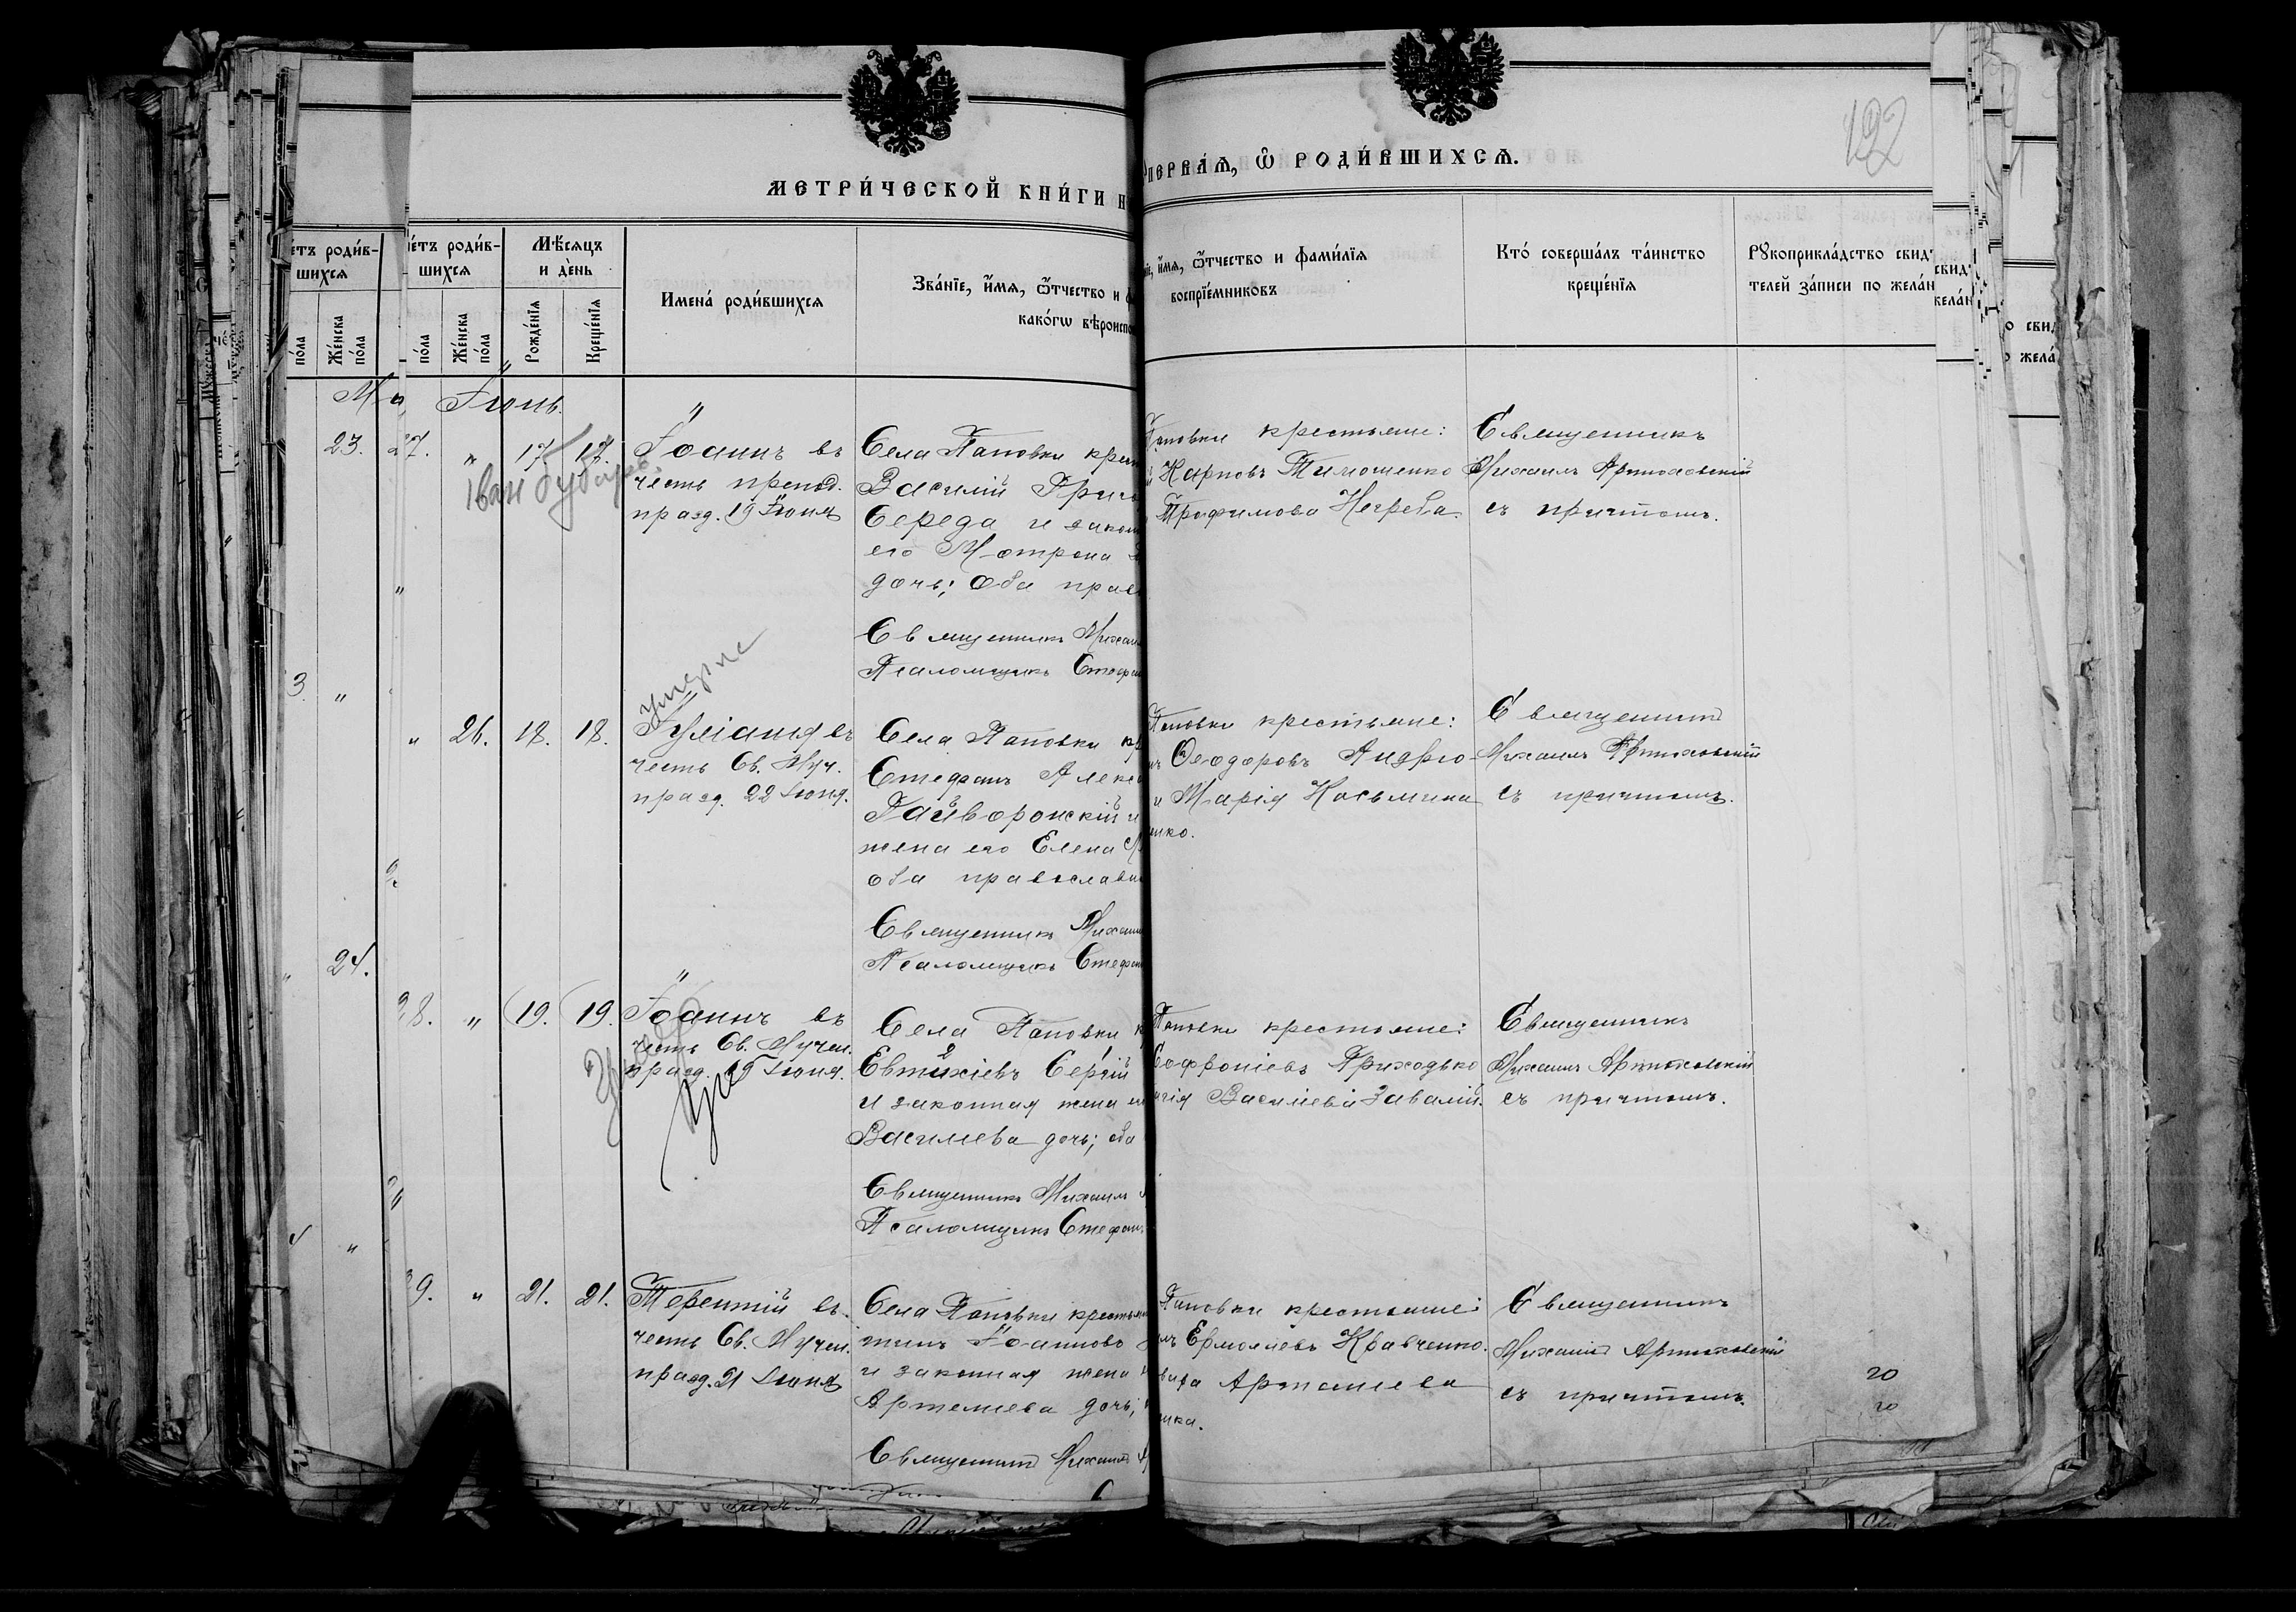 122
МЕТРИ́ЧЕСКОЙ КНИ́ГИ Н
ПЕРВА́Ѧ, Ѡ РОДИ́ВШИХСѦ.
е́тъ роди́в-
шихсѧ
по́ла
Же́нска
по́ла
е́тъ роди́в-
шихсѧ
по́ла
Же́нска
по́ла
Мѣ́сѧцъ
и де́нь
Рожде́нїѧ
Креще́нїѧ
Имена̀ роди́вшихсѧ
Зва́нїе, и҆́мѧ, ѻ҆́тчество и
како́гѡ вѣроиспо
и҆́мѧ, ѻ҆́тчество и фами́лїѧ
воспрїе́мниковъ
Кто̀ соверша́лъ та́инство
креще́нїѧ
Рꙋкоприкла́дство свид
телей за́писи по жела́н
свид
жела́н
23.
3 "
24.
"
Іюнь.
27. " 17. 17.
Іоаннъ въ
честь препод.
празд. 19 Іюня
Іван
Села Паповки крест
Василій Григо
Середа и закон
его Мотрона
дочь; оба прав
Священникъ Михаи
Псаломщикъ Стефан
Паповки крестьяне:
Карповъ Тимошенко
Трофимова Негреба.
Священникъ
Михаилъ Артюховскій
съ причтомъ.
Умерис
" 26. 18. 18.
Іуліанія въ
честь Св. Муч.
празд. 22 Іюня.
Села Паповки кр
Стефанъ Алекс
Гайворонскій и
жена его Елена
оба православн
Священникъ Михаи
Псаломщикъ Стефан
Паповки крестьяне:
Ѳеодоровъ Андрю-
и Марія Косьмина
нко.
Священникъ
Михаилъ Артюховскій
съ причтомъ.
28. " 19. 19.
Іоаннъ въ
честь Св. Мучен.
празд. 19 Іюня.
Села Паповки к
Евтихіевъ Сергій
и законная жена ег
Василиева дочь; оба
Священникъ Михаилъ
Псаломщикъ Стефанъ
Паповки крестьяне:
Софроніевъ Приходько
Василіева Завалій.
Священникъ
Михаилъ Артюховскій
съ причтомъ.
9. " 21. 21.
Терентій въ
честь Св. Мучен.
празд. 21 Іюня
Села Паповки крестьян
Іоанново
и законная жена
Артемиева дочь;
Священникъ Михаилъ
Паповки крестьяне:
Ермолаевъ Кравченко.
Артемиева
нка.
Священникъ
Михаилъ Артюховскій
съ причтомъ.
20
20